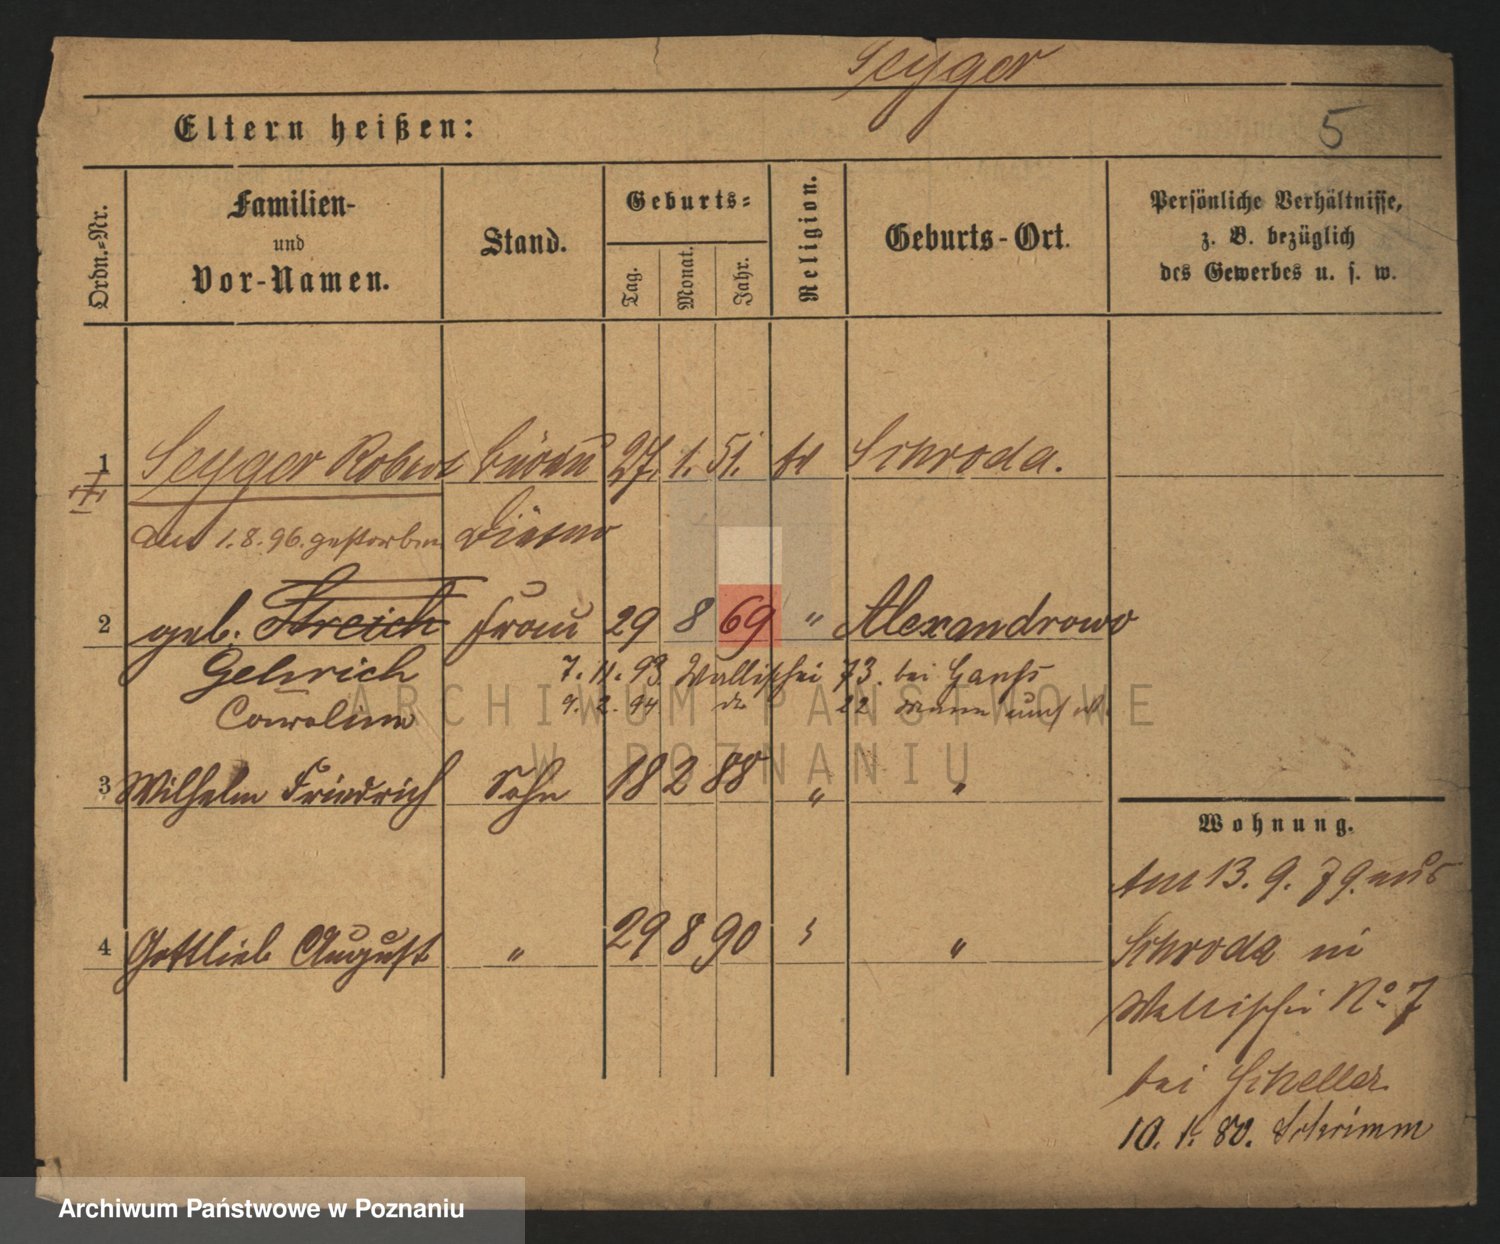 Seyger
Eltern heißen:
5
Ordn.-Nr.
Familien-
und
Vor-Namen.
Stand.
Geburts-
Tag.
Monat.
Jahr.
Religion.
Geburts-Ort.
Persönliche Verhältnisse,
z. B. bezüglich
des Gewerbes u. s. w.
1 Seyger Robert Büreau 27. 1. 51. ev Schroda.
am 1.8.96. gestorben Diener
2 geb. Streich Frau 29 8 69 " Alexandrowo
Gehrich 7. 11. 93 Wallischei 73. bei
Caroline 9. 2. 94 do 22
3 Wilhelm Friedrich Sohn 18 2 88 " "
Wohnung.
Am 13. 9. 79. aus
4 Gottlieb August " 29 8 90 "
Schroda in
Wallischei No 7
bei Scheller
10. 1. 80. Schrimm
ARCHIWUM PAŃSTWOWE
W POZNANIU
Archiwum Państwowe w Poznaniu